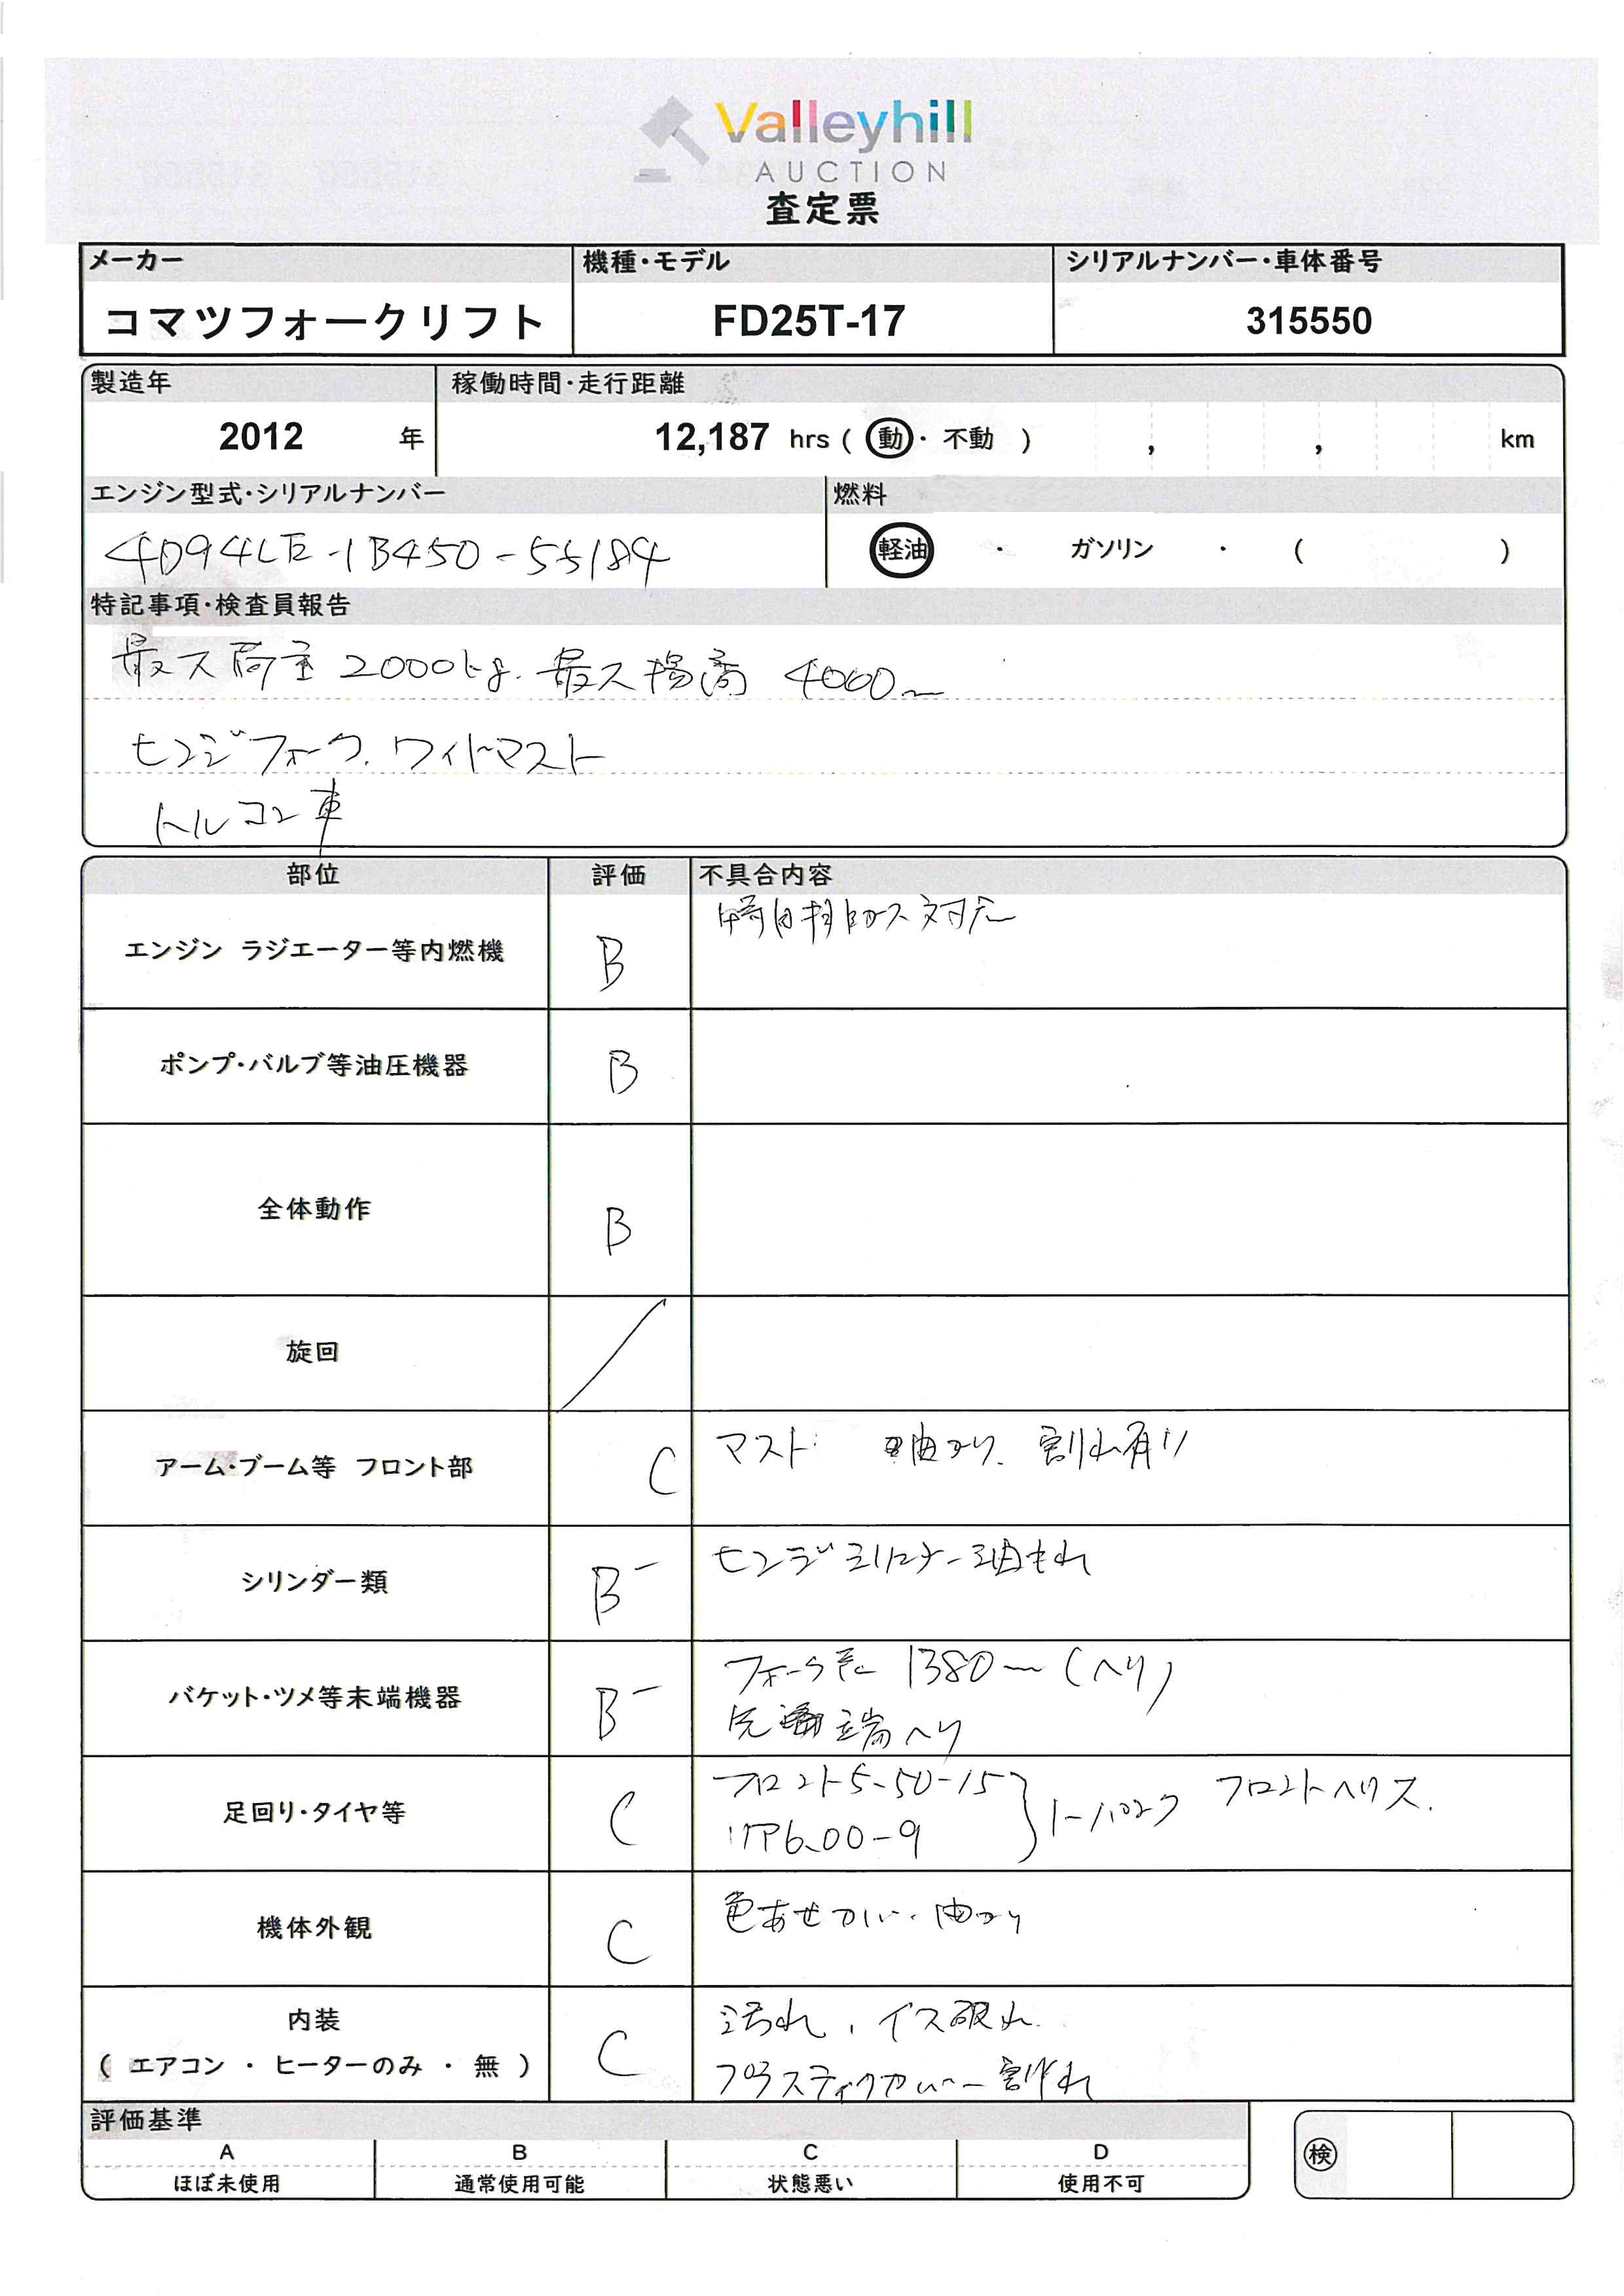 Valleyhill
AUCTION
査定票
メーカー 機種・モデル シリアルナンバー・車体番号
コマツフォークリフト FD25T-17 315550
製造年 稼働時間・走行距離
2012 年 12,187 hrs ( 動・不動 ) , , km
エンジン型式・シリアルナンバー 燃料
4D94LE-1B450-55184 軽油 ・ ガソリン ・ ( )
特記事項・検査員報告
最大荷重 2000kg. 最大揚高 4000
ヒンジフォーク. ワイドマスト
トルコン車
部位 評価 不具合内容
エンジン ラジエーター等内燃機 B 対応
ポンプ・バルブ等油圧機器 B
全体動作 B
旋回 /
アーム・ブーム等 フロント部 C マスト 曲がり. 割れ有り
シリンダー類 B- ヒンジシリンダー油もれ
バケット・ツメ等末端機器 B- フォーク長 1380 (ヘリ)
先端ヘリ
足回り・タイヤ等 C フロント5.50-15 } ノーパンク フロントヘリ大.
リア6.00-9
機体外観 C 色あせ 曲がり
内装 C 汚れ. イス破れ.
( エアコン ・ ヒーターのみ ・ 無 ) プラスティックカバー割れ
評価基準
A B C D
ほぼ未使用 通常使用可能 状態悪い 使用不可
検